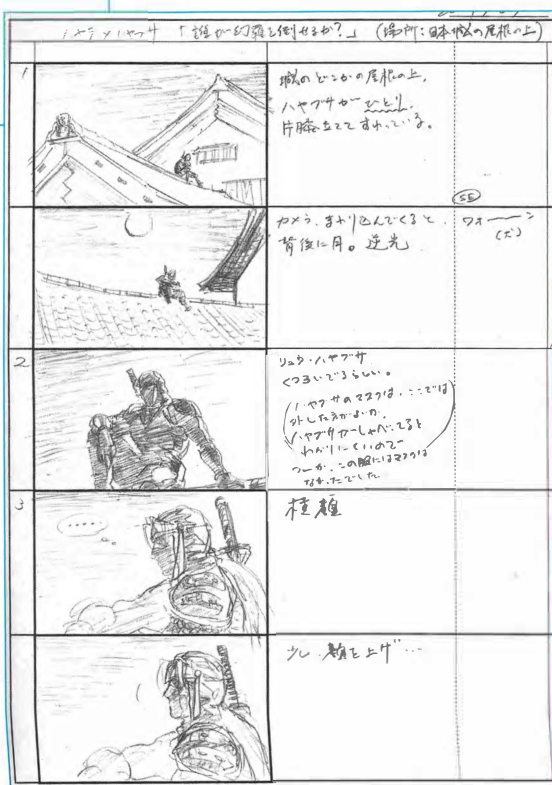 「誰が幻羅を倒せるか?」 (場所:日本城の屋根の上)
1
城のどこかの屋根の上、
ハヤブサがひとり、
片膝立てて すわっている。
SE
カメラ、まわり込んでくると、
背後に月。逆光
ワオーーン
(犬)
2
リュウ・ハヤブサ
くつろいでるらしい。
(ハヤブサのマスクは、ここでは
外した方がよいか、
ハヤブサがしゃべってると
わかりにくいので
つーか、この服にはマスクは
なかったでした)
3
・・・・・
横顔
少し、顔を上げ…